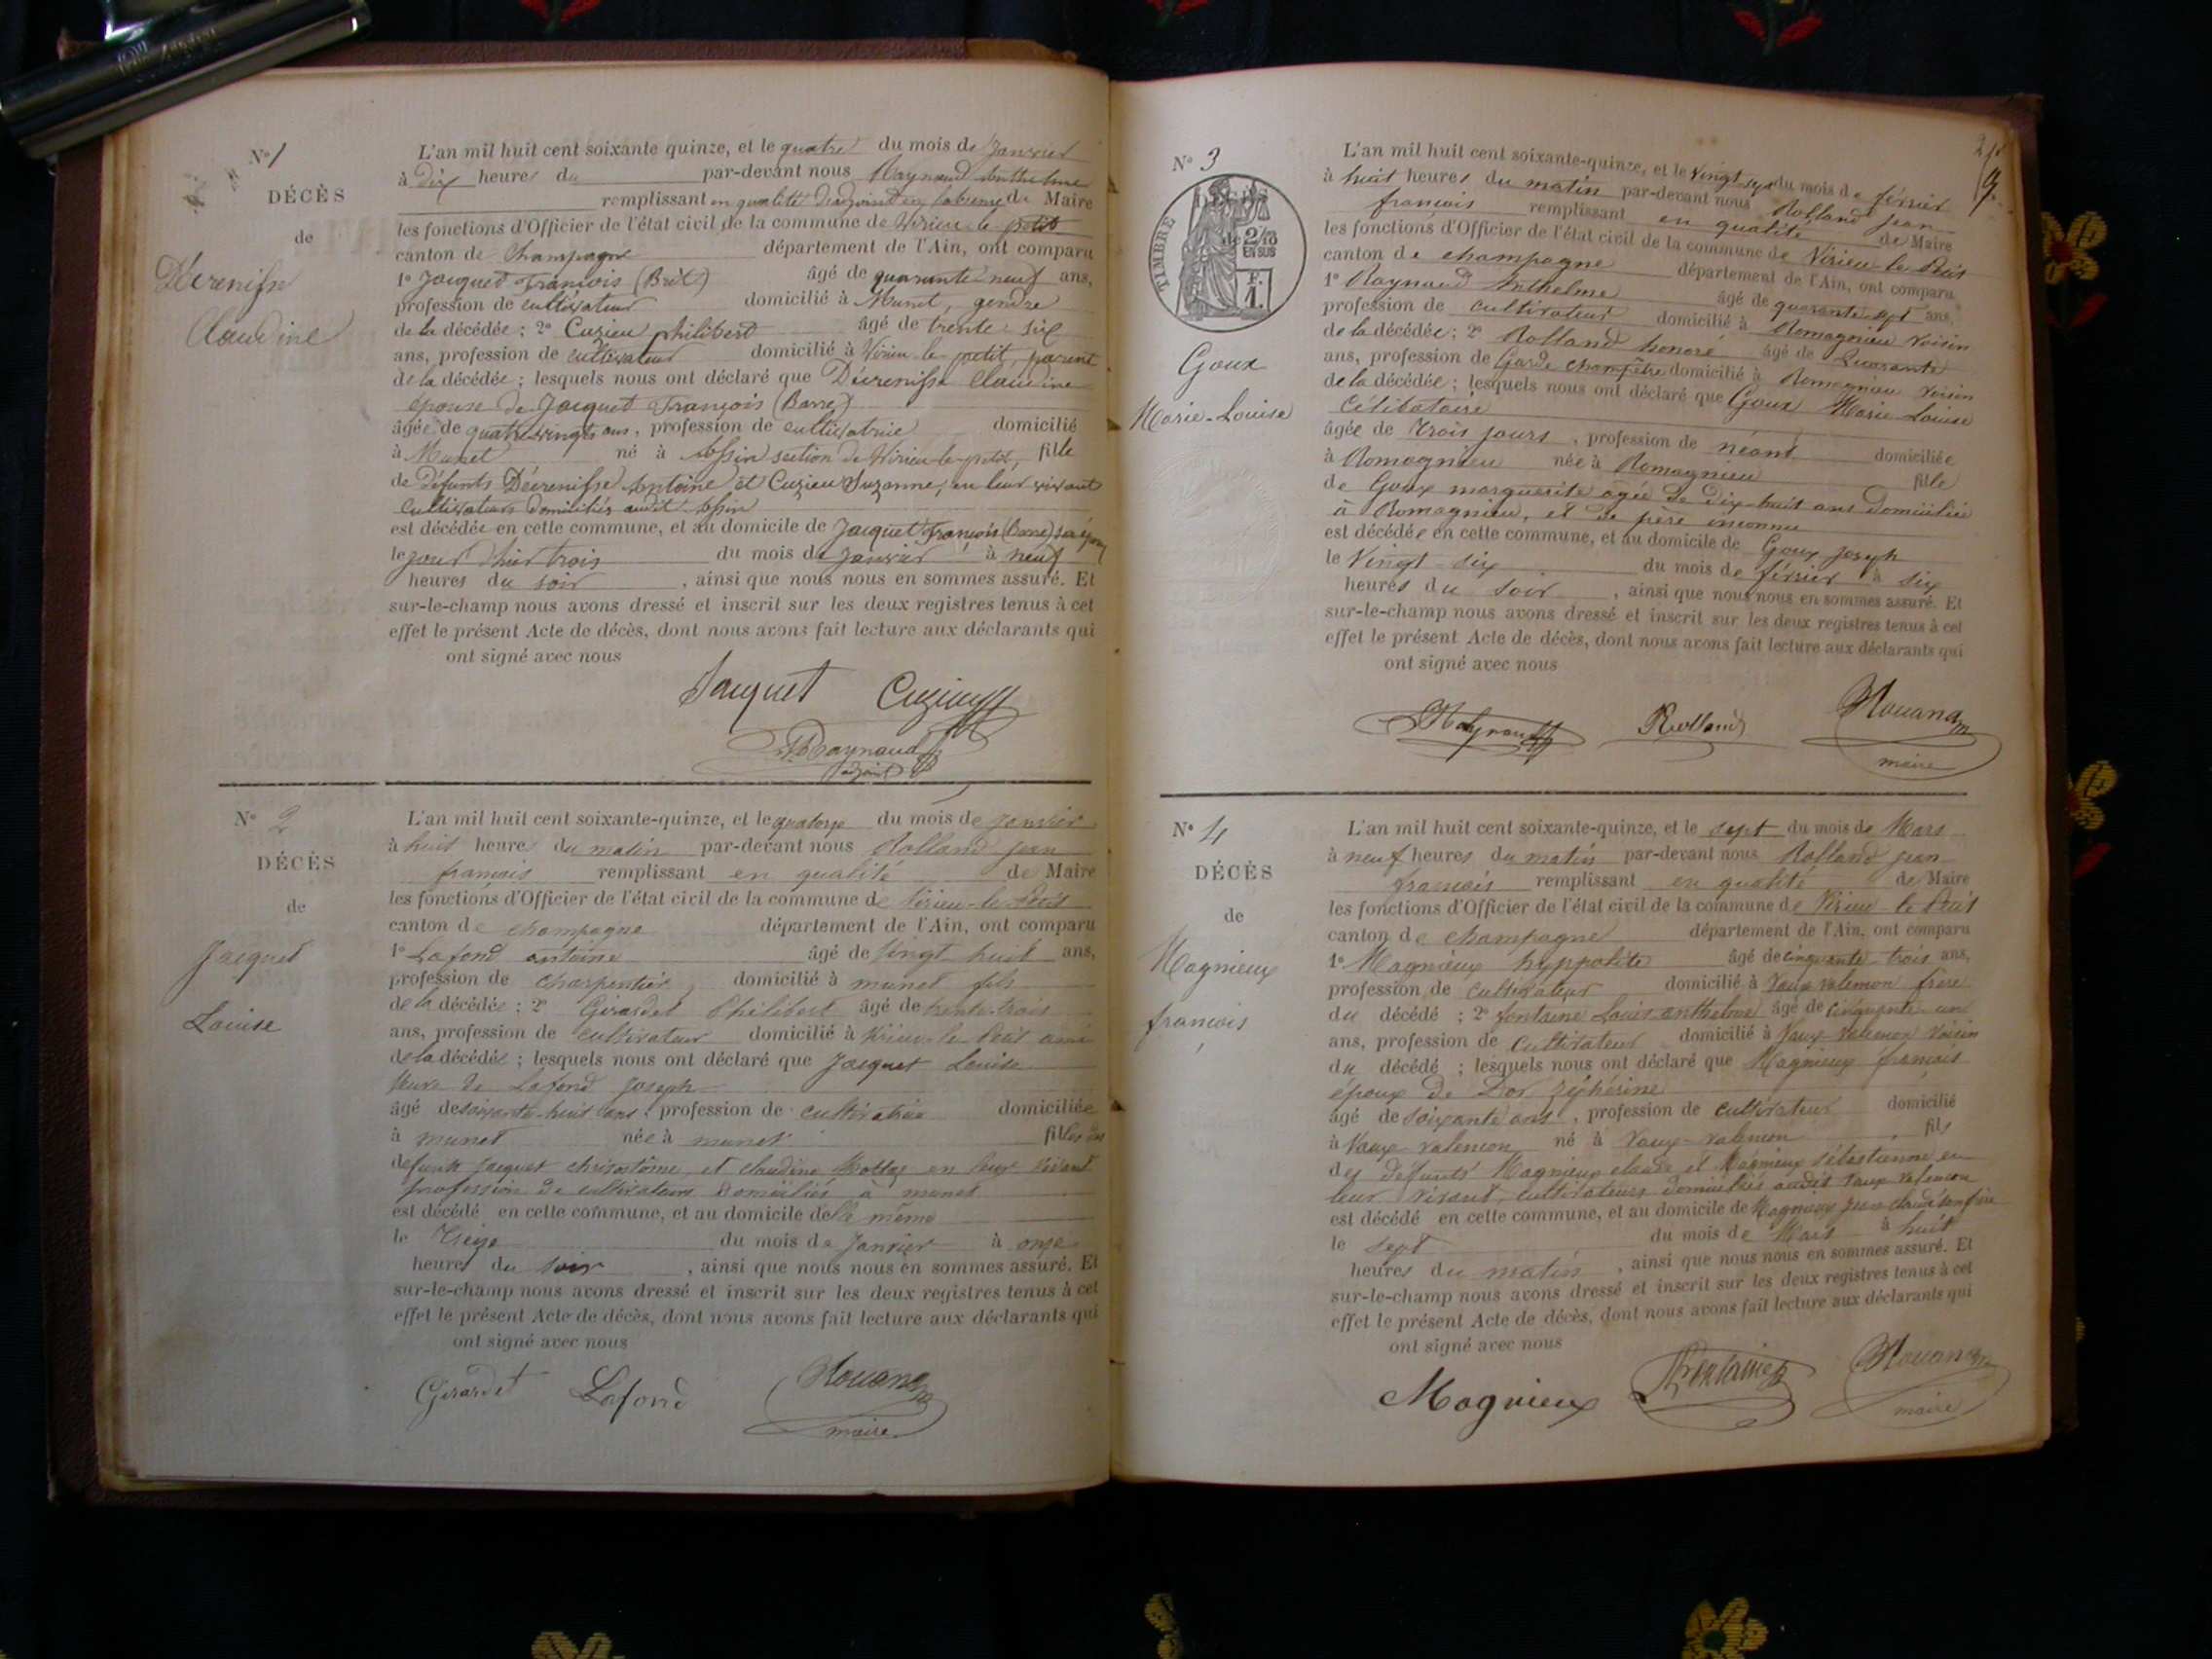 N° 1
DÉCÈS
de
Décrenisse
Claudine
L'an mil huit cent soixante quinze, et le quatre du mois de Janvier
à Dix heures du par-devant nous Raynaud Anthelme
remplissant en qualité d'adjoint en absence de Maire
les fonctions d'Officier de l'état civil de la commune de Virieu-le-petit
canton de Champagne département de l'Ain, ont comparu
1° Jacquet François (Brèt) âgé de quarante-neuf ans,
profession de cultivateur domicilié à Munet, gendre
de la décédée ; 2° Cuzieu philibert âgé de trente-six
ans, profession de cultivateur domicilié à Virieu-le-petit, parent
de la décédée ; lesquels nous ont déclaré que Décrenisse Claudine
épouse de Jacquet François (Barre)
âgée de quatre-vingts ans, profession de cultivatrice domicilié
à Munet né à Assin section de Virieu-le-petit, fille
de défunts Décrenisse Antoine et Cuzieu Suzanne, en leur vivant
cultivateurs domiciliés audit Assin
est décédée en cette commune, et au domicile de Jacquet François (Barre) son époux
le jour d'hier trois du mois de janvier à neuf
heures du soir , ainsi que nous nous en sommes assuré. Et
sur-le-champ nous avons dressé et inscrit sur les deux registres tenus à cet
effet le présent Acte de décès, dont nous avons fait lecture aux déclarants qui
ont signé avec nous
Jacquet Cuzieu
Raynaud
adjoint
N° 2
DÉCÈS
de
Jacquet
Louise
L'an mil huit cent soixante-quinze, et le quatorze du mois de janvier
à huit heure du matin par-devant nous Rolland jean
francois remplissant en qualité de Maire
les fonctions d'Officier de l'état civil de la commune de Virieu-le-Petit
canton de champagne département de l'Ain, ont comparu
1° Lafond antoine âgé de Vingt huit ans,
profession de charpentier domicilié à munet fils
de la décédée ; 2° Girardet Philibert âgé de trente-trois
ans, profession de cultivateur domicilié à Virieu-le Petit ami
de la décédée ; lesquels nous ont déclaré que Jacquet Louise
Veuve de Lafond joseph
âgé de soixante-huit ans, profession de cultivatrice domiciliée
à munet née à munet fille des
defunts jacquet chrisostôme et claudine Mottaz en leur vivant
profession de cultivateurs domiciliés à munet
est décédé en cette commune, et au domicile de la même
le Treize du mois de Janvier à onze
heures du soir , ainsi que nous nous en sommes assuré. Et
sur-le-champ nous avons dressé et inscrit sur les deux registres tenus à cet
effet le présent Acte de décès, dont nous avons fait lecture aux déclarants qui
ont signé avec nous
Girardet Lafond
maire
N° 3
TIMBRE
de 2/10
EN SUS
F.
1.
Goux
Marie-Louise
L'an mil huit cent soixante-quinze, et le Vingt-sept du mois de février
à huit heures du matin par-devant nous Rolland jean
francois remplissant en qualité de Maire
les fonctions d'Officier de l'état civil de la commune de Virieu-le-Petit
canton de champagne département de l'Ain, ont comparu
1° Raynaud Anthelme âgé de quarante-sept ans,
profession de cultivateur domicilié à Romagnieu voisin
de la décédée ; 2° Rolland honoré âgé de Quarante
ans, profession de Garde champêtre domicilié à Romagnieu voisin
de la décédée ; lesquels nous ont déclaré que Goux Marie-Louise
célibataire
âgée de trois jours , profession de néant domiciliée
à Romagnieu née à Romagnieu fille
de Goux marguerite agée de dix-huit ans domiciliée
à Romagnieu, et de père inconnu
est décédée en cette commune, et au domicile de Goux joseph
le Vingt-six du mois de février à six
heures du soir , ainsi que nous nous en sommes assuré. Et
sur-le-champ nous avons dressé et inscrit sur les deux registres tenus à cet
effet le présent Acte de décès, dont nous avons fait lecture aux déclarants qui
ont signé avec nous
Raynaud Rolland
maire
N° 4
DÉCÈS
de
Magnieux
francois
L'an mil huit cent soixante-quinze, et le sept du mois de Mars
à neuf heures du matin par-devant nous Rolland jean
francois remplissant en qualité de Maire
les fonctions d'Officier de l'état civil de la commune de Virieu-le-Petit
canton de champagne département de l'Ain, ont comparu
1° Magnieux hyppolite âgé de cinquante-trois ans,
profession de cultivateur domicilié à Vaux valemon frère
du décédé ; 2° fontaine Louis anthelme âgé de cinquante-un
ans, profession de cultivateur domicilié à Vaux-valemon Voisin
du décédé ; lesquels nous ont déclaré que Magnieux francois
époux de Dor Zéphérine
âgé de soixante ans , profession de cultivateur domicilié
à Vaux valemon né à Vaux-valemon fils
des défunts Magnieux claude et Magnieux sébastienne en
leur vivant, cultivateurs domiciliés audit Vaux valemon
est décédé en cette commune, et au domicile de Magnieux jean claude son frère
le sept du mois de Mars à huit
heures du matin , ainsi que nous nous en sommes assuré. Et
sur-le-champ nous avons dressé et inscrit sur les deux registres tenus à cet
effet le présent Acte de décès, dont nous avons fait lecture aux déclarants qui
ont signé avec nous
Magnieux Fontaine
maire